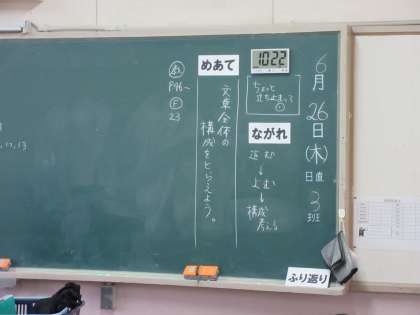 6月26日(木)
日直 3班
10:22
ちょっと
立ち止まって
ながれ
↓
よむ
↓
構成
考える
めあて
文章全体の
構成をとらえよう。
P46〜
23
ふり返り